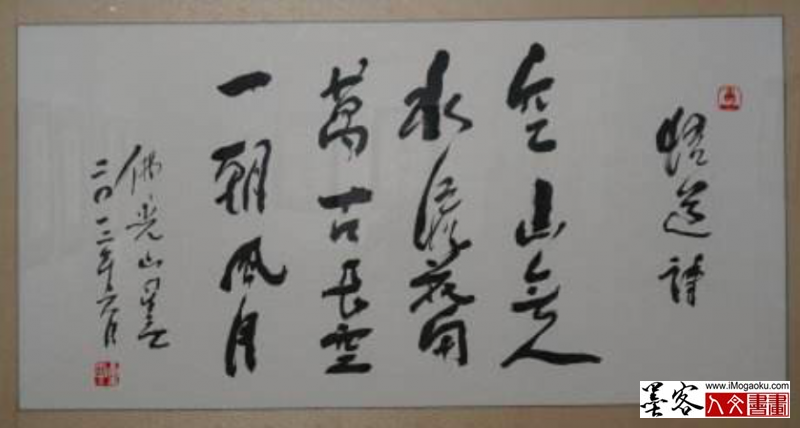 悟道詩
空山無人
水流花開
萬古長空
一朝風月
佛光山星雲
二〇一三年六月
墨客
www.iMogaoku.com
人文書畫